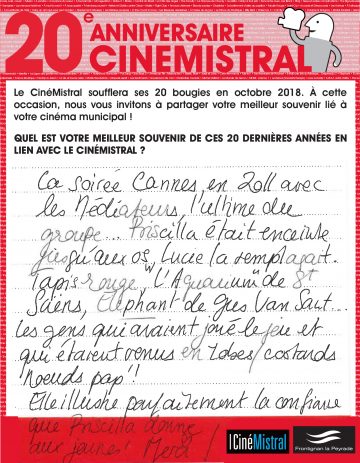 20e ANNIVERSAIRE
CINEMISTRAL
Le CinéMistral soufflera ses 20 bougies en octobre 2018. À cette
occasion, nous vous invitons à partager votre meilleur souvenir lié à
votre cinéma municipal !
QUEL EST VOTRE MEILLEUR SOUVENIR DE CES 20 DERNIÈRES ANNÉES EN
LIEN AVEC LE CINÉMISTRAL ?
La soirée Cannes, en 2011 avec
les Médiateurs, l'ultime du
groupe... Priscilla était enceinte
jusqu'aux os, Lucie la remplaçait.
Tapis rouge, L'Aquarium de St
Saëns, Elephant de Gus Van Sant...
Les gens qui avaient joué le jeu et
qui étaient venus en robes/costards
noeuds pap'!
Elle illustre parfaitement la confiance
que Priscilla donne
aux jeunes! Merci!
CinéMistral
Frontignan la Peyrade